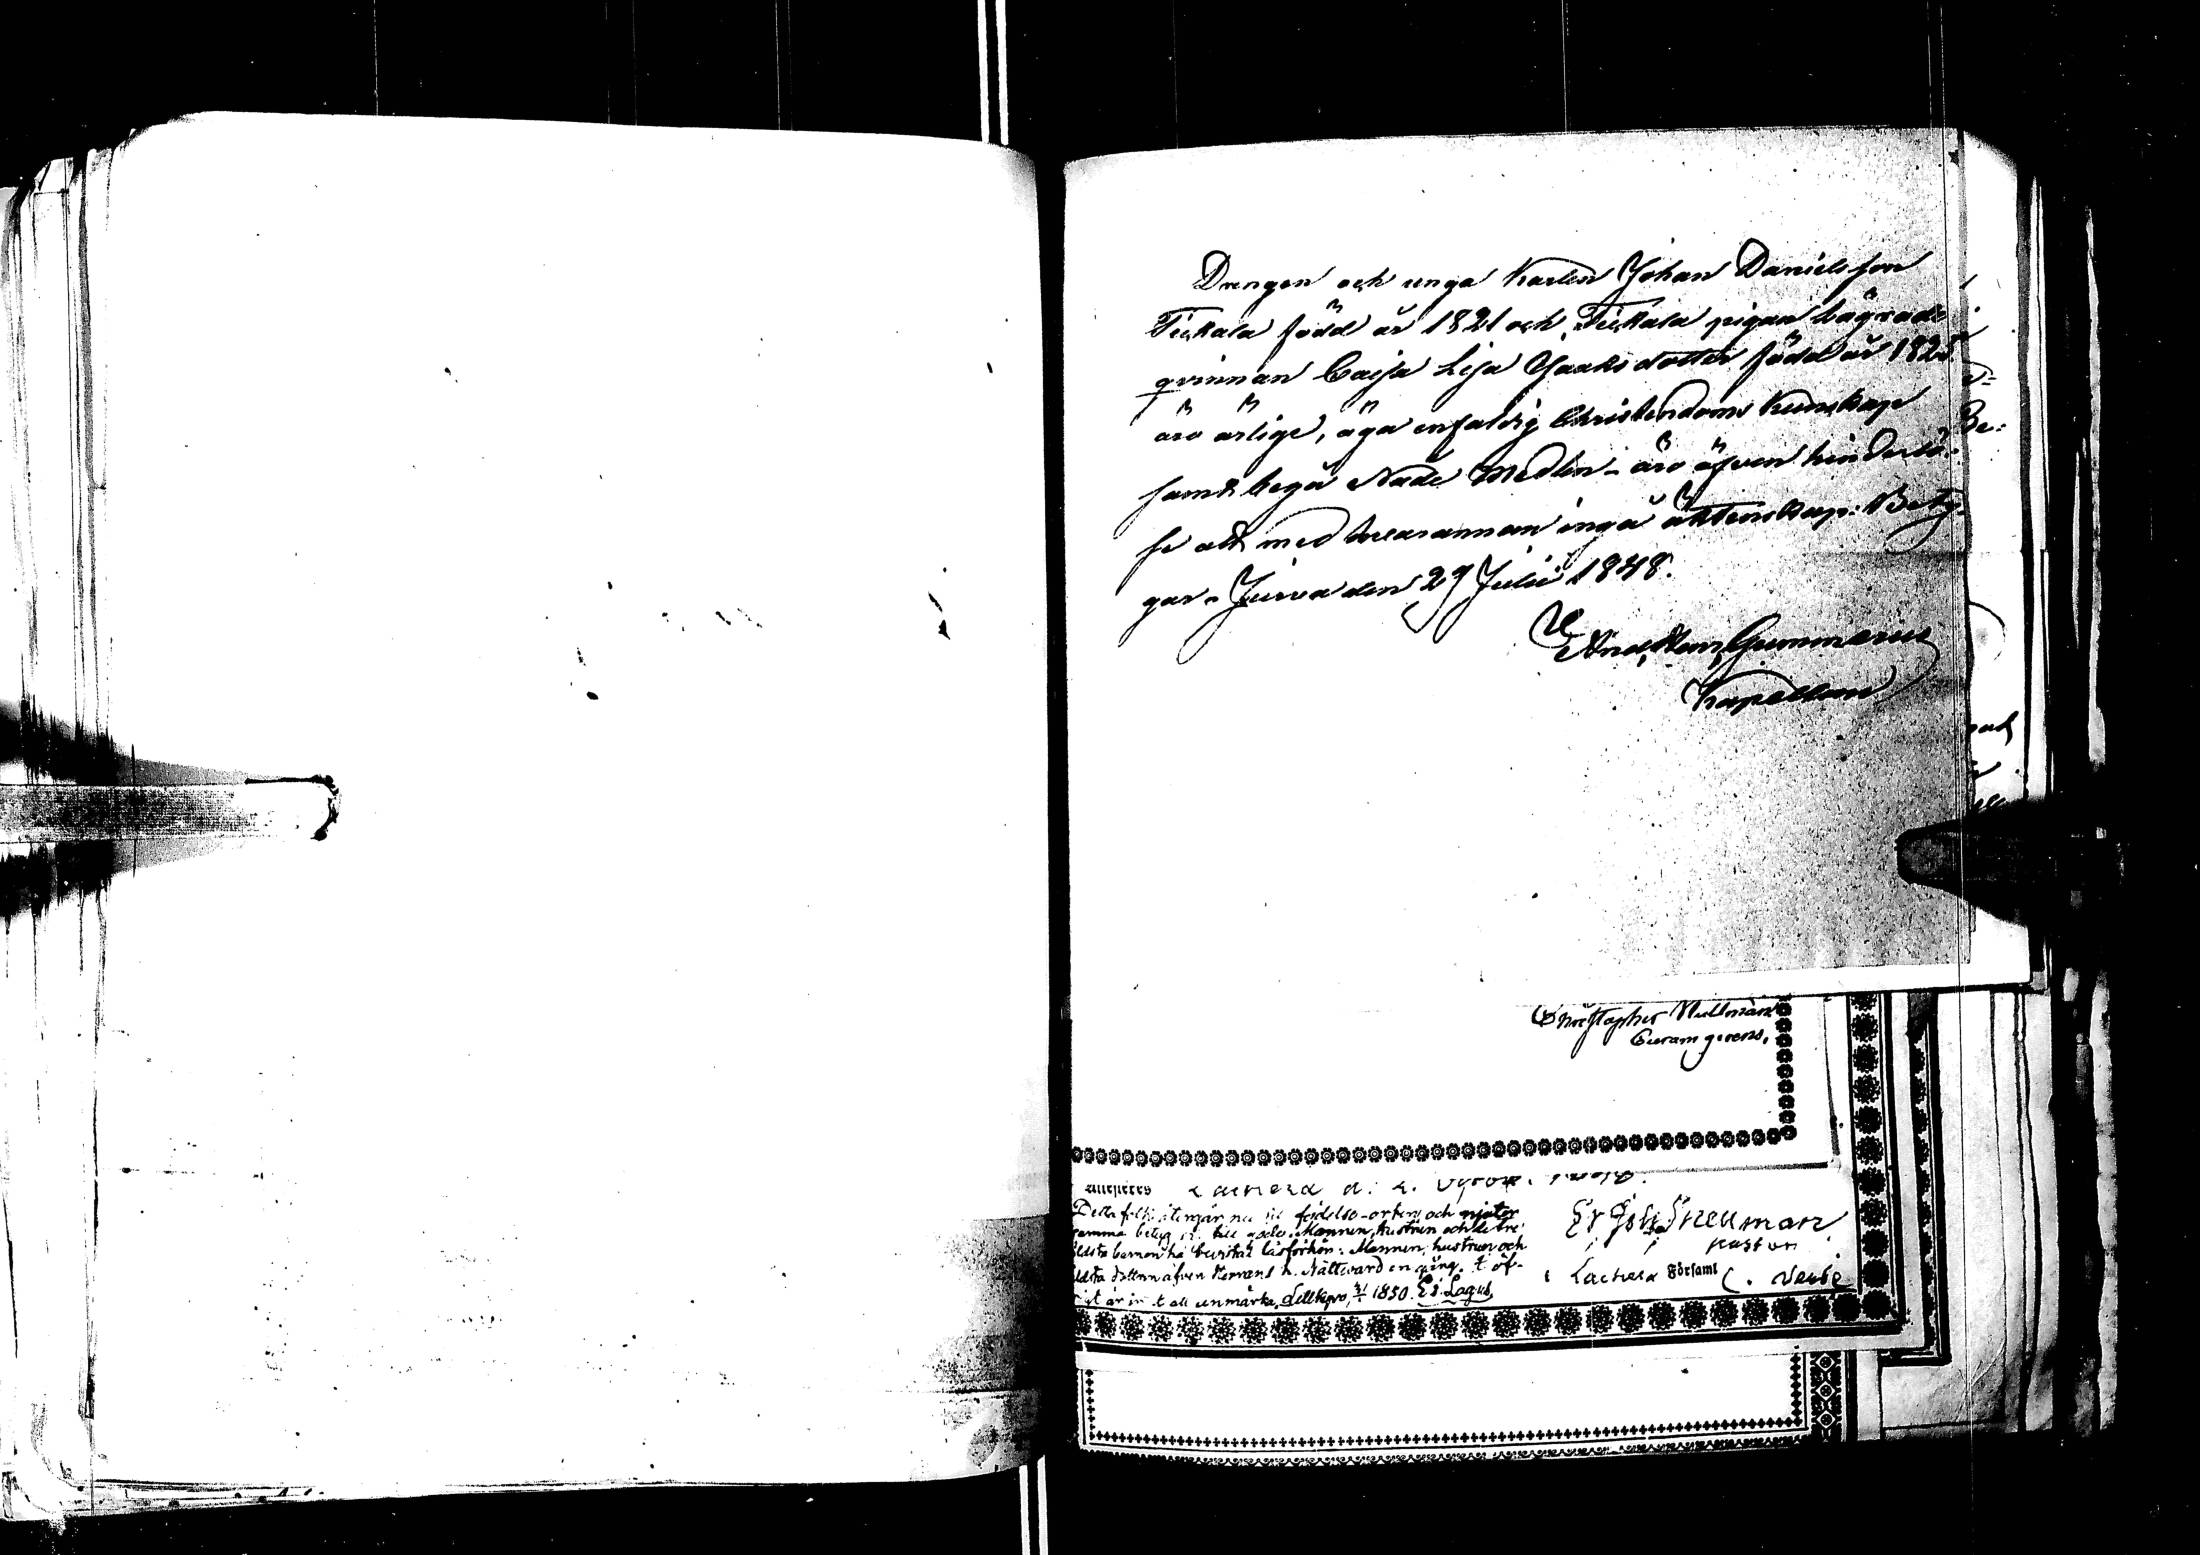 Drengen och unga Karlen Johan Danielsson
Tiukala född år 1821 och Tiukala pigan lägrade
qvinnan Caisa Lisa Jaaksdotter född år 1825
äro ärlige, äga enfaldig Christendoms Kunskap
samt begå Nåde Medlen - äro äfven hinderlö-
se att med hvarannan ingå äktenskap: Bety-
gar - Jurva den 29 Julii 1848.
Gummerus
Kapellan
Be:
Christopher
Curam gerens.
Laihela d.
Detta folk återgår nu till födelse-orten och njuter
samma betyg till godo. Mannen, hustrun och de tre
äldsta barnen ha bevistat läsförhör: Mannen, hustrun och
äldsta dottern äfven Herrans h. Nattvard en gång. t öf-
är in t att anmärka, 1850. Er. Lagus
Er Joh Snellman
pastor
i Laihela Församl